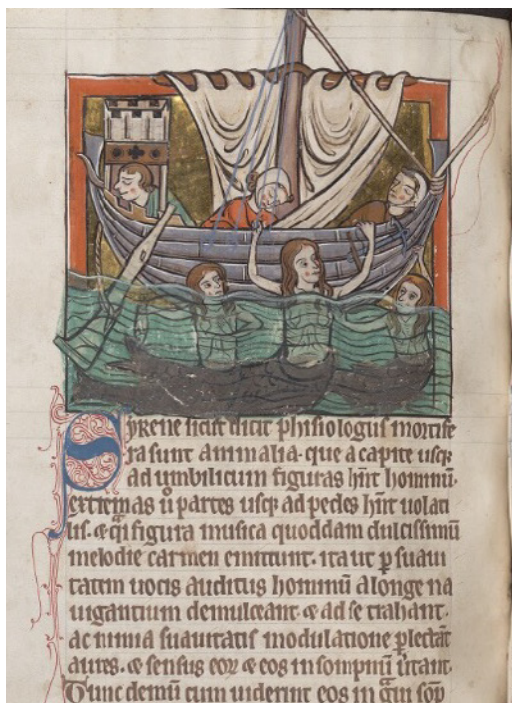 Syrene sicut dicit phisiologus mortife
ra sunt animalia. que a capite usq;
ad umbilicum figuras hn̄t hominū.
extremas ů partes usq; ad pedes hn̄t uolati
lis. ⁊ q̄ figura musica quoddam dulcissimū
melodie carmen emittunt. ita ut ꝑ suaui
tatem uocis auditus hominū a longe na
uigantium demulceant. ⁊ ad se trahant.
ac nimia suauitatis modulatione ꝑlectāt
aures. ⁊ sensus eoꝝ ⁊ eos in sompnū ūtant.
Tunc demū cum uiderint eos in sop̄